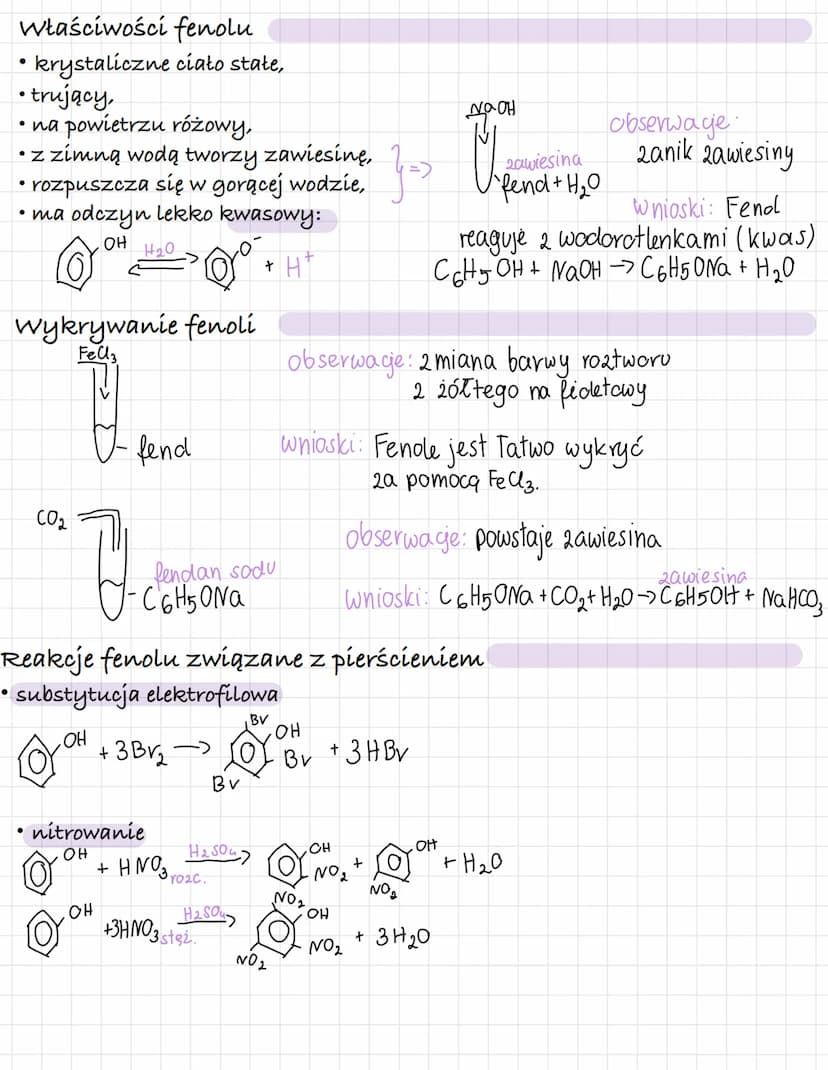 Właściwości fenolu
• krystaliczne ciało stałe,
• trujący,
• na powietrzu różowy,
• z zimną wodą tworzy zawiesinę,
• rozpuszcza się w gorącej wodzie,
• ma odczyn lekko kwasowy:
} =>
NaOH
zawiesina
fenol + H₂O
obserwacje:
zanik zawiesiny
wnioski: Fenol
reaguje z wodorotlenkami (kwas)
C₆H₅OH + NaOH → C₆H₅ONa + H₂O
OH H₂O ⇌ O⁻ + H⁺
Wykrywanie fenoli
FeCl₃
fenol
obserwacje: zmiana barwy roztworu
z żółtego na fioletowy
wnioski: Fenole jest łatwo wykryć
za pomocą FeCl₃.
CO₂
fenolan sodu
C₆H₅ONa
obserwacje: powstaje zawiesina
zawiesina
wnioski: C₆H₅ONa + CO₂ + H₂O → C₆H₅OH + NaHCO₃
Reakcje fenolu związane z pierścieniem
• substytucja elektrofilowa
OH + 3Br₂ → Br OH Br Br + 3HBr
• nitrowanie
OH + HNO₃ rozc. H₂SO₄ → OH NO₂ + OH NO₂ + H₂O
OH +3HNO₃ stęż. H₂SO₄ → NO₂ OH NO₂ NO₂ + 3H₂O